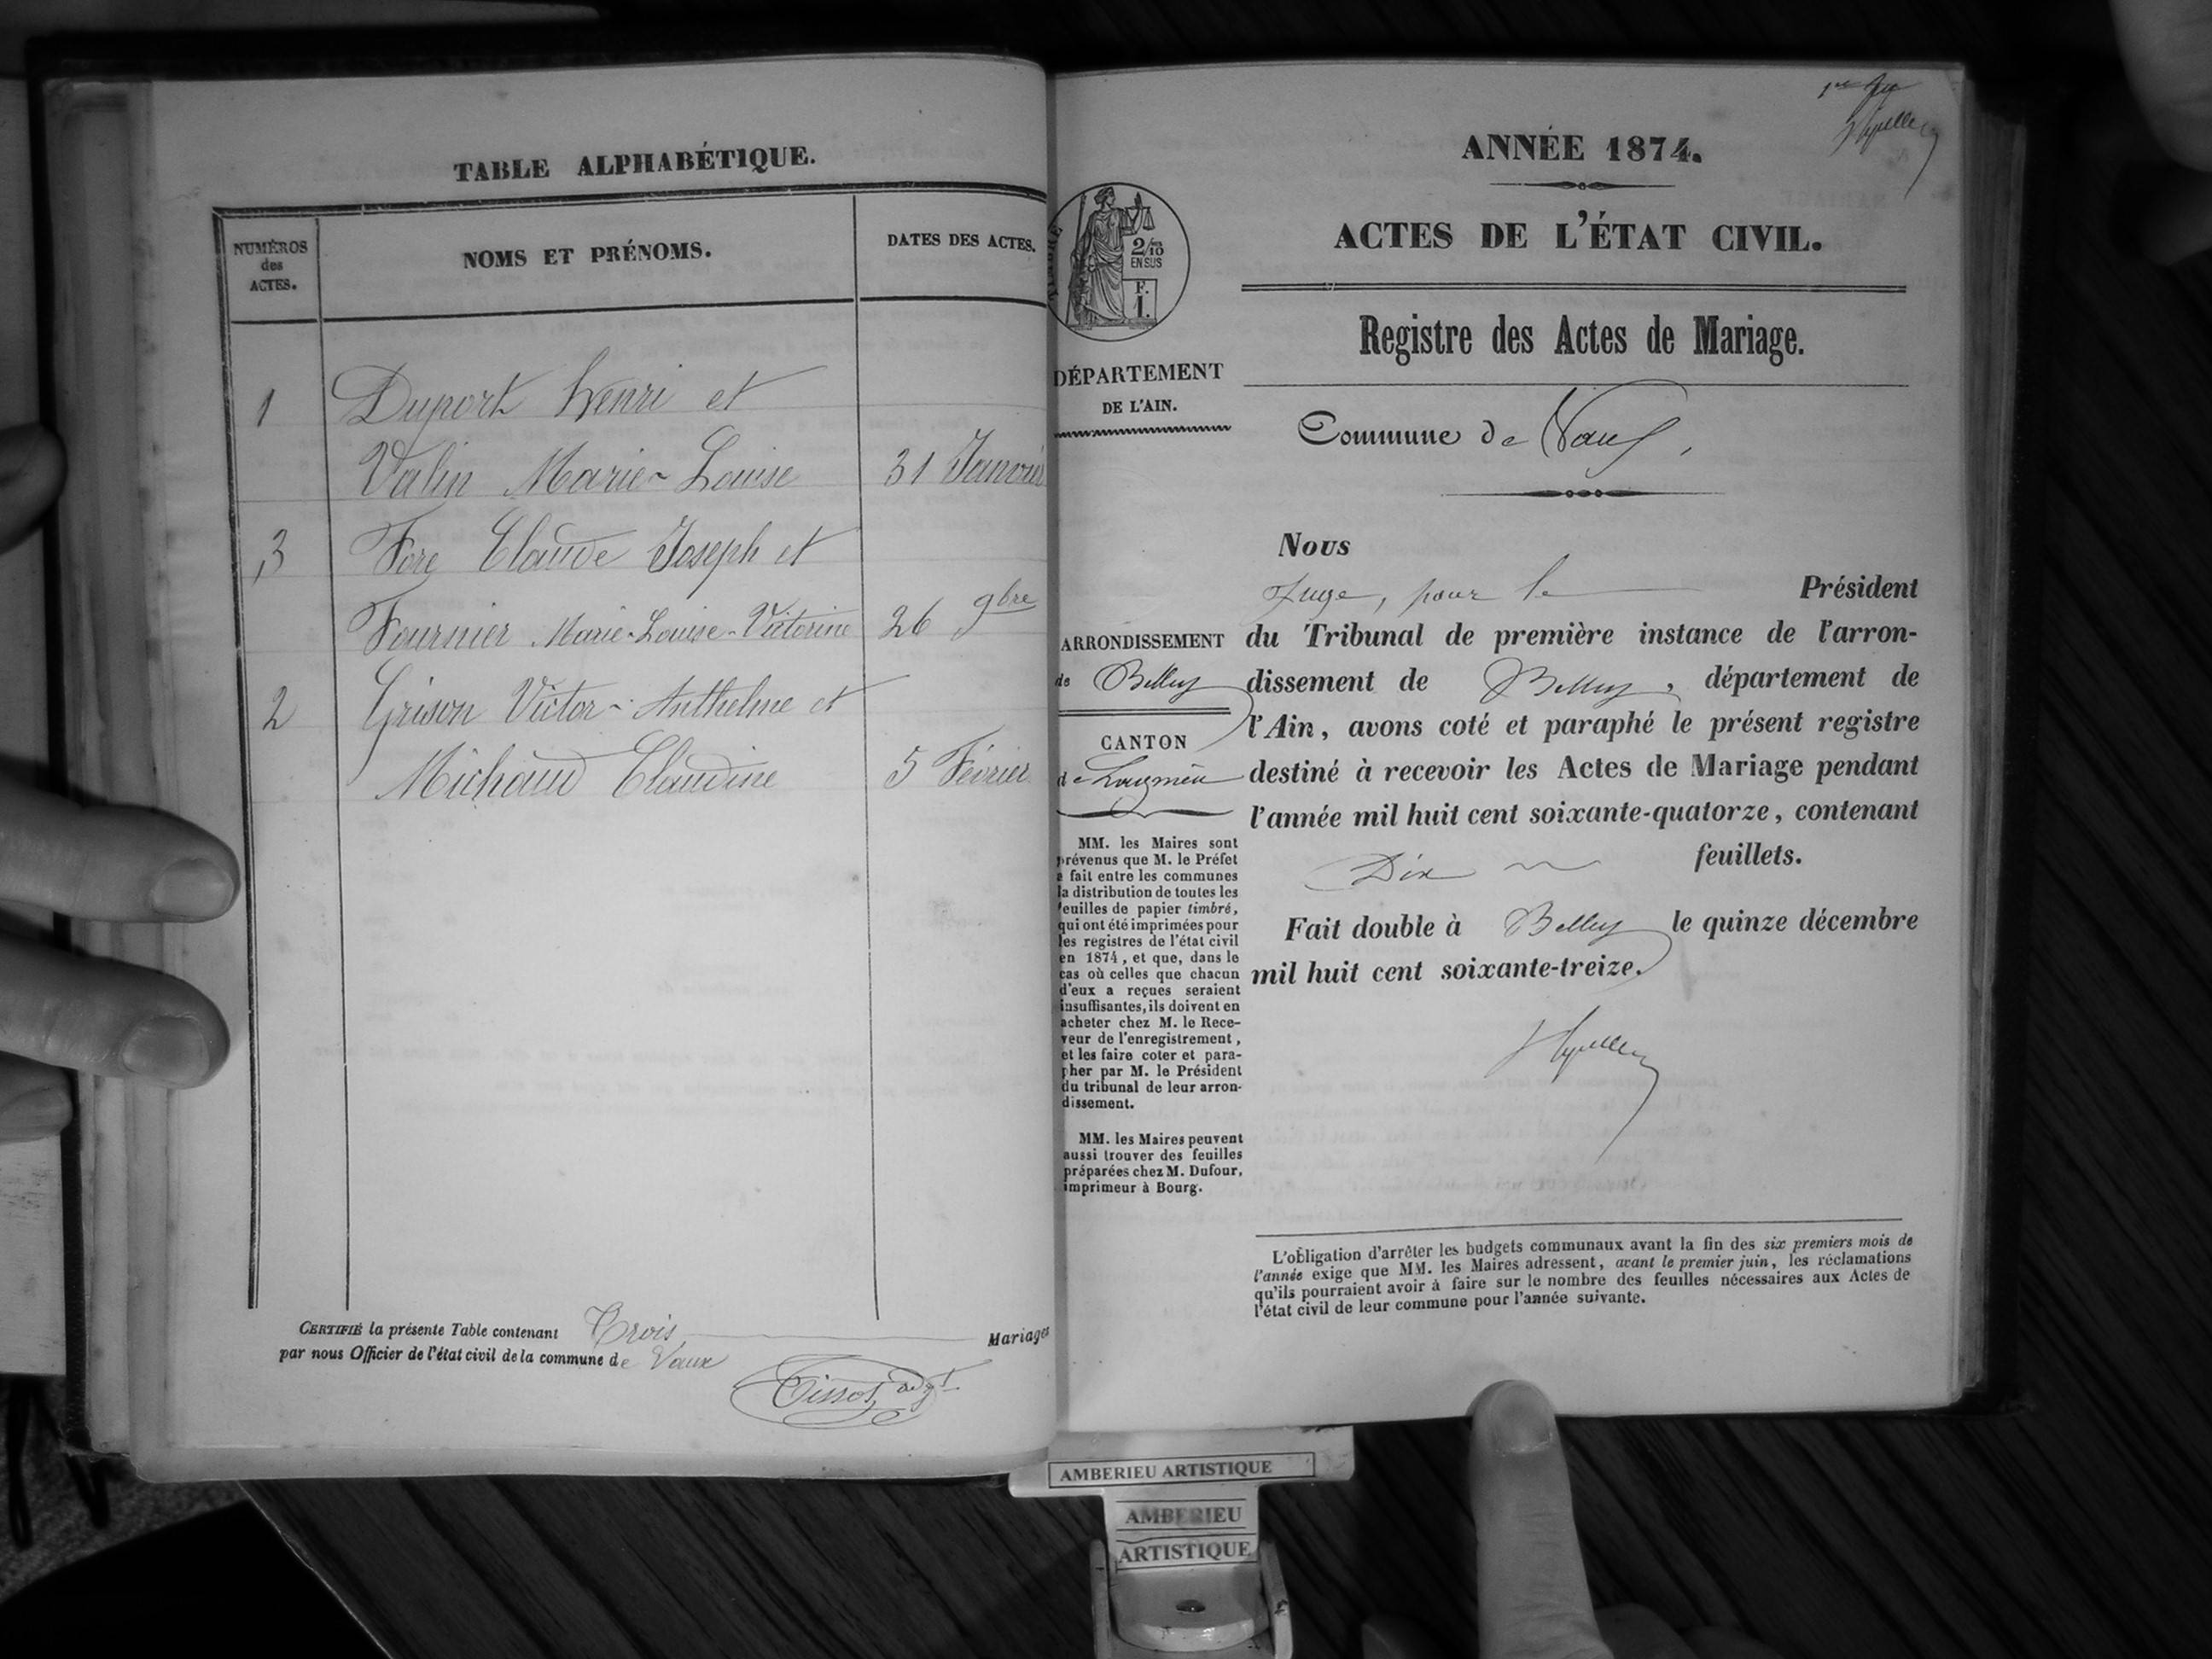 TABLE ALPHABÉTIQUE.
NUMÉROS
des
ACTES.
NOMS ET PRÉNOMS.
DATES DES ACTES.
1 Duport henri et
Valin Marie-Louise 31 Janvier
3 Fore Claude Joseph et
Fournier Marie-Louise-Victorine 26 9bre
2 Grison Victor-Anthelme et
Michaud Claudine 5 Février
CERTIFIÉ la présente Table contenant Trois Mariages
par nous Officier de l'état civil de la commune de Vaux
Tissot, adjt
ANNÉE 1874.
ACTES DE L'ÉTAT CIVIL.
Registre des Actes de Mariage.
2/10
EN SUS
F.
1.
DÉPARTEMENT
DE L'AIN.
Commune de Vaux,
ARRONDISSEMENT
de Belley
CANTON
de Lagnieu
MM. les Maires sont
prévenus que M. le Préfet
a fait entre les communes
la distribution de toutes les
feuilles de papier timbré,
qui ont été imprimées pour
les registres de l'état civil
en 1874, et que, dans le
cas où celles que chacun
d'eux a reçues seraient
insuffisantes, ils doivent en
acheter chez M. le Rece-
veur de l'enregistrement,
et les faire coter et para-
pher par M. le Président
du tribunal de leur arron-
dissement.
MM. les Maires peuvent
aussi trouver des feuilles
préparées chez M. Dufour,
imprimeur à Bourg.
Nous
Juge, pour le Président
du Tribunal de première instance de l'arron-
dissement de Belley, département de
l'Ain, avons coté et paraphé le présent registre
destiné à recevoir les Actes de Mariage pendant
l'année mil huit cent soixante-quatorze, contenant
Dix feuillets.
Fait double à Belley le quinze décembre
mil huit cent soixante-treize.
L'obligation d'arrêter les budgets communaux avant la fin des six premiers mois de
l'année exige que MM. les Maires adressent, avant le premier juin, les réclamations
qu'ils pourraient avoir à faire sur le nombre des feuilles nécessaires aux Actes de
l'état civil de leur commune pour l'année suivante.
AMBERIEU ARTISTIQUE
AMBERIEU
ARTISTIQUE